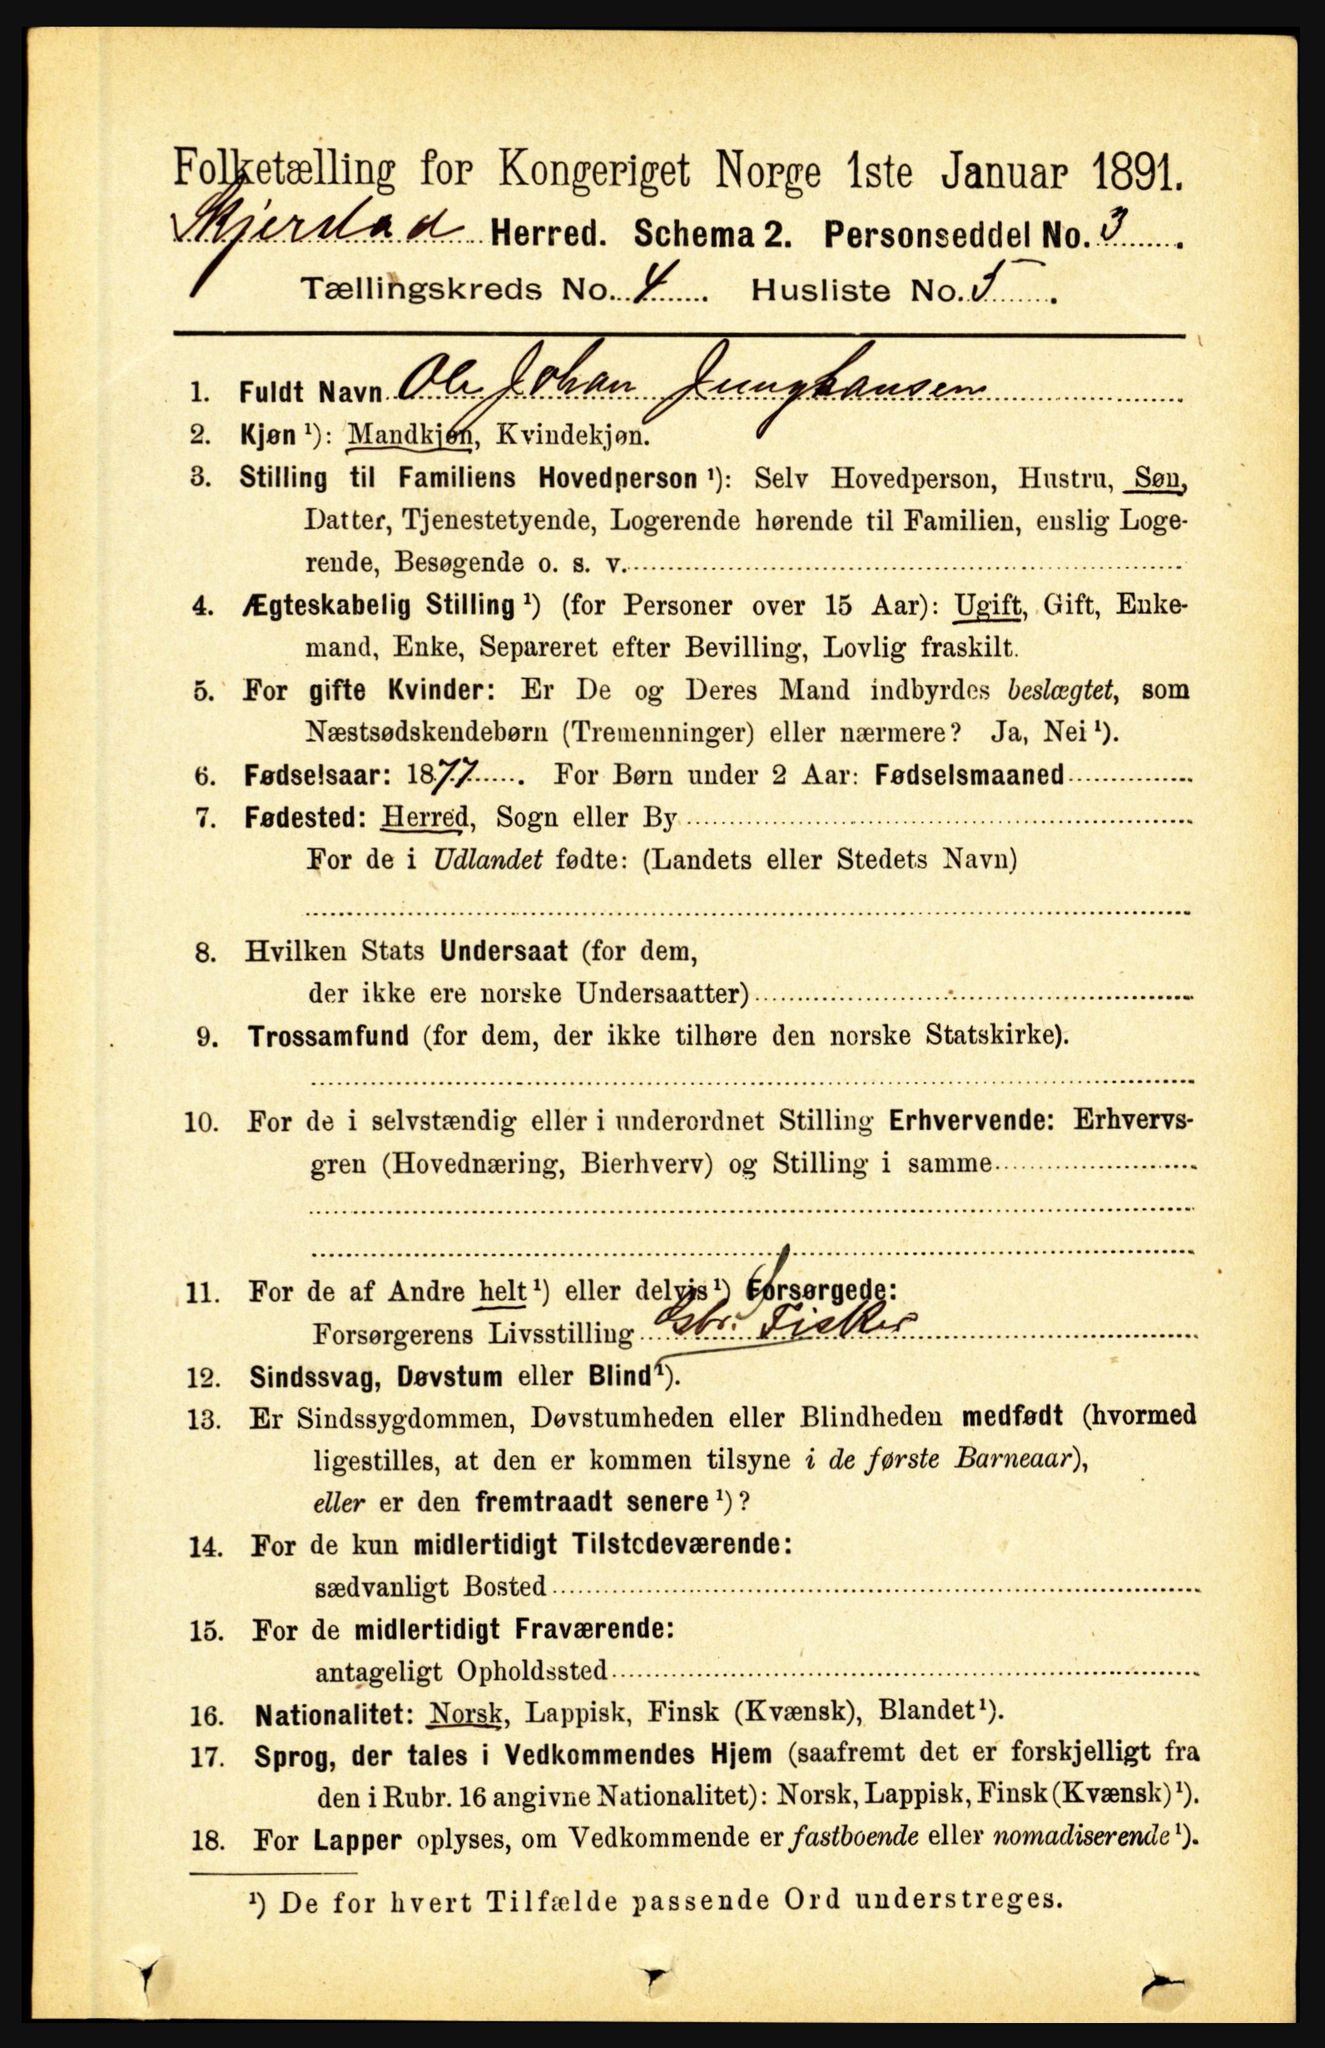 Folketælling for Kongeriget Norge 1ste Januar 1891.
Skjerstad Herred. Schema 2. Personseddel No. 3.
Tællingskreds No. 4. Husliste No. 5.
1. Fuldt Navn Ole Johan Junghansen
2. Kjøn ¹): Mandkjøn, Kvindekjøn.
3. Stilling til Familiens Hovedperson ¹): Selv Hovedperson, Hustru, Søn,
Datter, Tjenestetyende, Logerende hørende til Familien, enslig Loge-
rende, Besøgende o. s. v.
4. Ægteskabelig Stilling ¹) (for Personer over 15 Aar): Ugift, Gift, Enke-
mand, Enke, Separeret efter Bevilling, Lovlig fraskilt.
5. For gifte Kvinder: Er De og Deres Mand indbyrdes beslægtet, som
Næstsødskendebørn (Tremenninger) eller nærmere? Ja, Nei ¹).
6. Fødselsaar: 1877. For Børn under 2 Aar: Fødselsmaaned
7. Fødested: Herred, Sogn eller By
For de i Udlandet fødte: (Landets eller Stedets Navn)
8. Hvilken Stats Undersaat (for dem,
der ikke ere norske Undersaatter)
9. Trossamfund (for dem, der ikke tilhøre den norske Statskirke).
10. For de i selvstændig eller i underordnet Stilling Erhvervende: Erhvervs-
gren (Hovednæring, Bierhverv) og Stilling i samme
11. For de af Andre helt ¹) eller delvis ¹) Forsørgede:
Forsørgerens Livsstilling Gbr. Fisker
12. Sindssvag, Døvstum eller Blind ¹).
13. Er Sindssygdommen, Døvstumheden eller Blindheden medfødt (hvormed
ligestilles, at den er kommen tilsyne i de første Barneaar),
eller er den fremtraadt senere ¹)?
14. For de kun midlertidigt Tilstedeværende:
sædvanligt Bosted
15. For de midlertidigt Fraværende:
antageligt Opholdssted
16. Nationalitet: Norsk, Lappisk, Finsk (Kvænsk), Blandet ¹).
17. Sprog, der tales i Vedkommendes Hjem (saafremt det er forskjelligt fra
den i Rubr. 16 angivne Nationalitet): Norsk, Lappisk, Finsk (Kvænsk) ¹).
18. For Lapper oplyses, om Vedkommende er fastboende eller nomadiserende ¹).
¹) De for hvert Tilfælde passende Ord understreges.